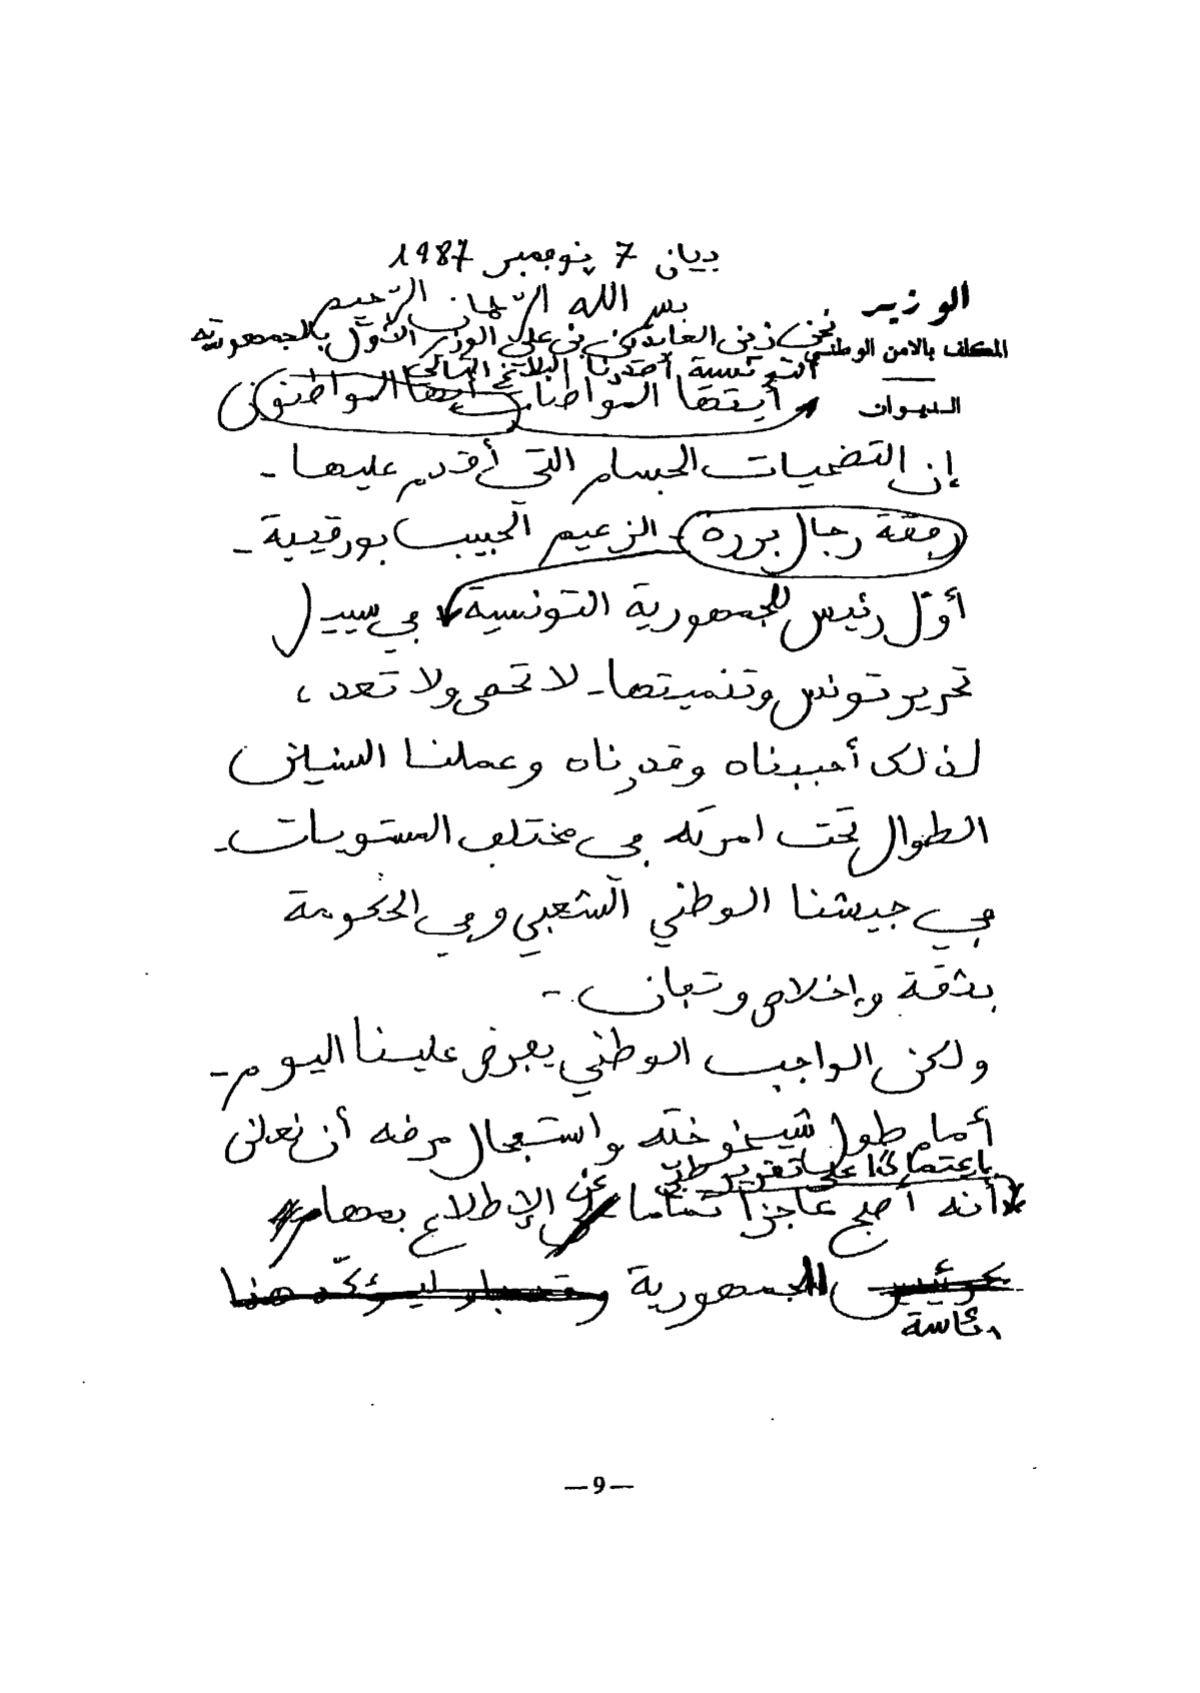 بيان 7 نوفمبر 1987
بسم الله الرّحمان الرّحيم
الوزير
نحن زين العابدين بن علي الوزير الأوّل بالجمهورية
المكلف بالامن الوطني
التونسية أصدرنا البلاغ التالي
أيتها المواطنات أيها المواطنون
الديوان
إن التضحيات الجسام التي أقدم عليها -
رفقة رجال بررة - الزعيم الحبيب بورقيبة -
أوّل رئيس للجمهورية التونسية في سبيل
تحرير تونس وتنميتها - لا تحصى ولا تعد ،
لذلك أحببناه وقدرناه وعملنا السنين
الطوال تحت امرته في مختلف المستويات -
في جيشنا الوطني الشعبي وفي الحكومة
بثقة وإخلاص وتفان . -
ولكن الواجب الوطني يفرض علينا اليوم -
أمام طول شيخوخته واستفحال مرضه أن نعلن
باعتمادنا على تقرير طبّي
أنه أصبح عاجزا تماما عن الإطلاع بمهام
كرئيس الجمهورية ليؤكّد هنا
رئاسة
—9—